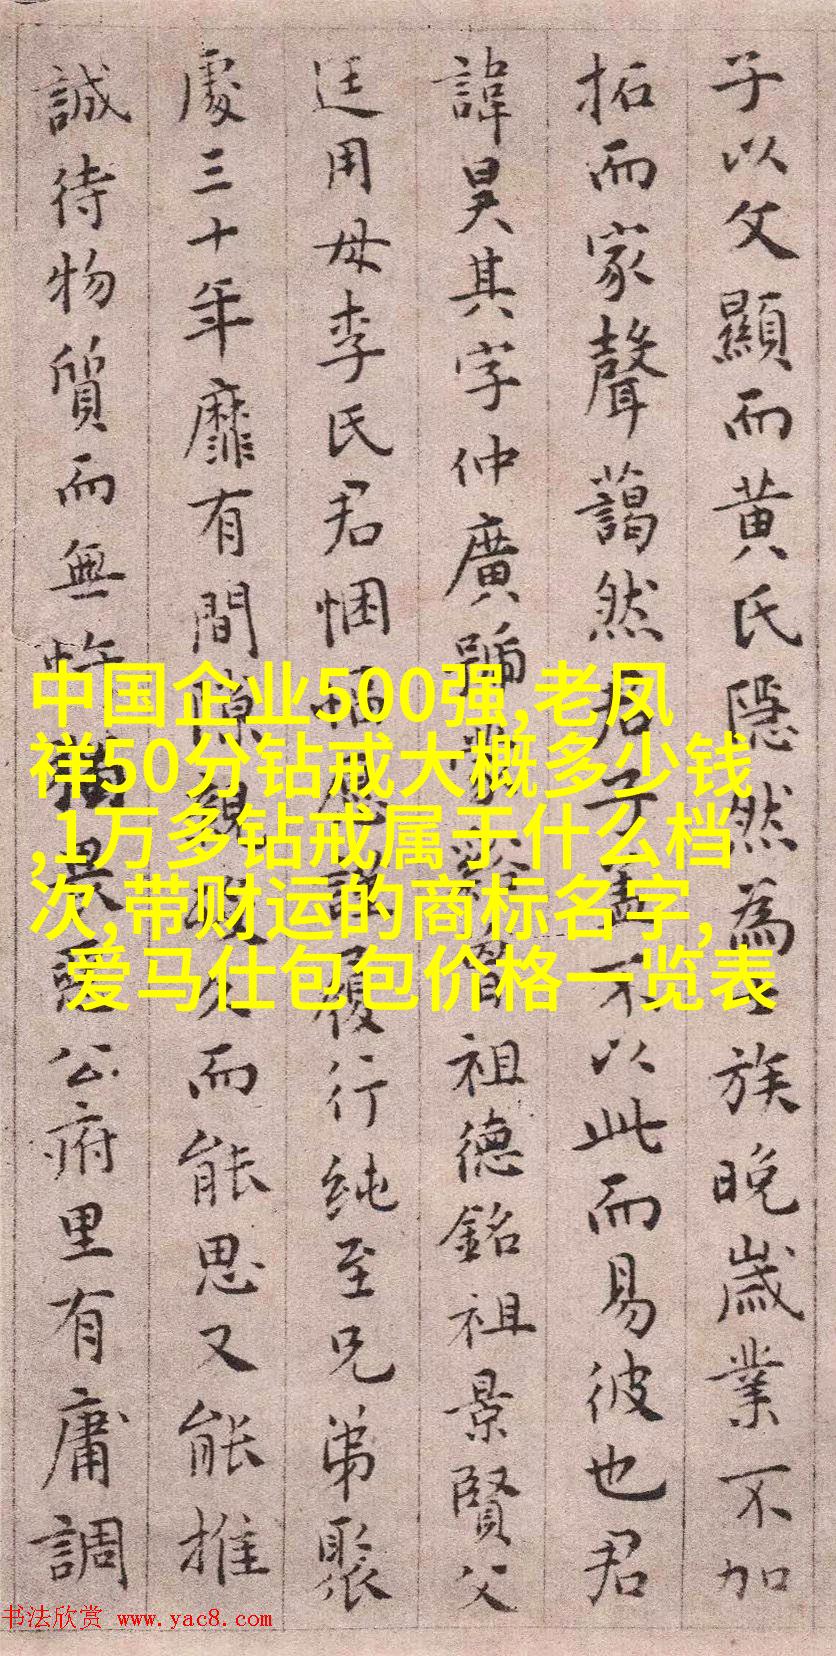 子以文顯而黄氏隱然為族晚歲業不加
拓而家聲藹然君子盖不以此而易彼也君
諱昊其字仲廣號谿曾祖德銘祖景賢父
廷用母李氏君悃愊謹履行純至兄弟聚
處三十年靡有間隙久而能思又能推
誠待物質而無忤公府里有庸調
中国企业500强,老凤
祥50分钻戒大概多少钱
,1万多钻戒属于什么档
次,带财运的商标名字,
爱马仕包包价格一览表
书法欣赏 www.yac8.com